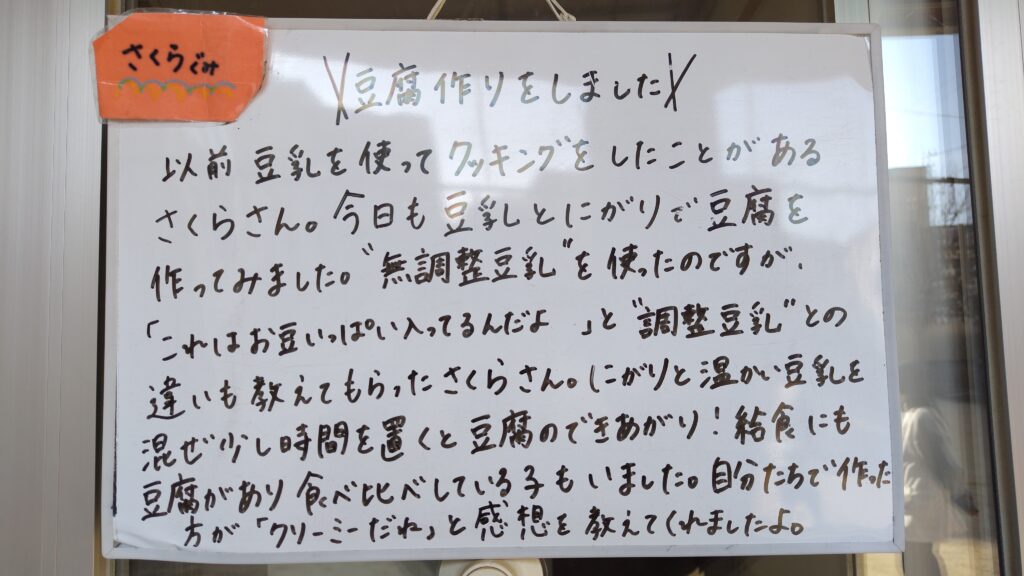 さくらぐみ
\豆腐作りをしました/
以前豆乳を使ってクッキングをしたことがある
さくらさん。今日も豆乳とにがりで豆腐を
作ってみました。"無調整豆乳"を使ったのですが、
「これはお豆いっぱい入ってるんだよ 」と"調整豆乳"との
違いも教えてもらったさくらさん。にがりと温かい豆乳を
混ぜ少し時間を置くと豆腐のできあがり!給食にも
豆腐があり食べ比べしている子もいました。自分たちで作った
方が「クリーミーだね」と感想を教えてくれましたよ。